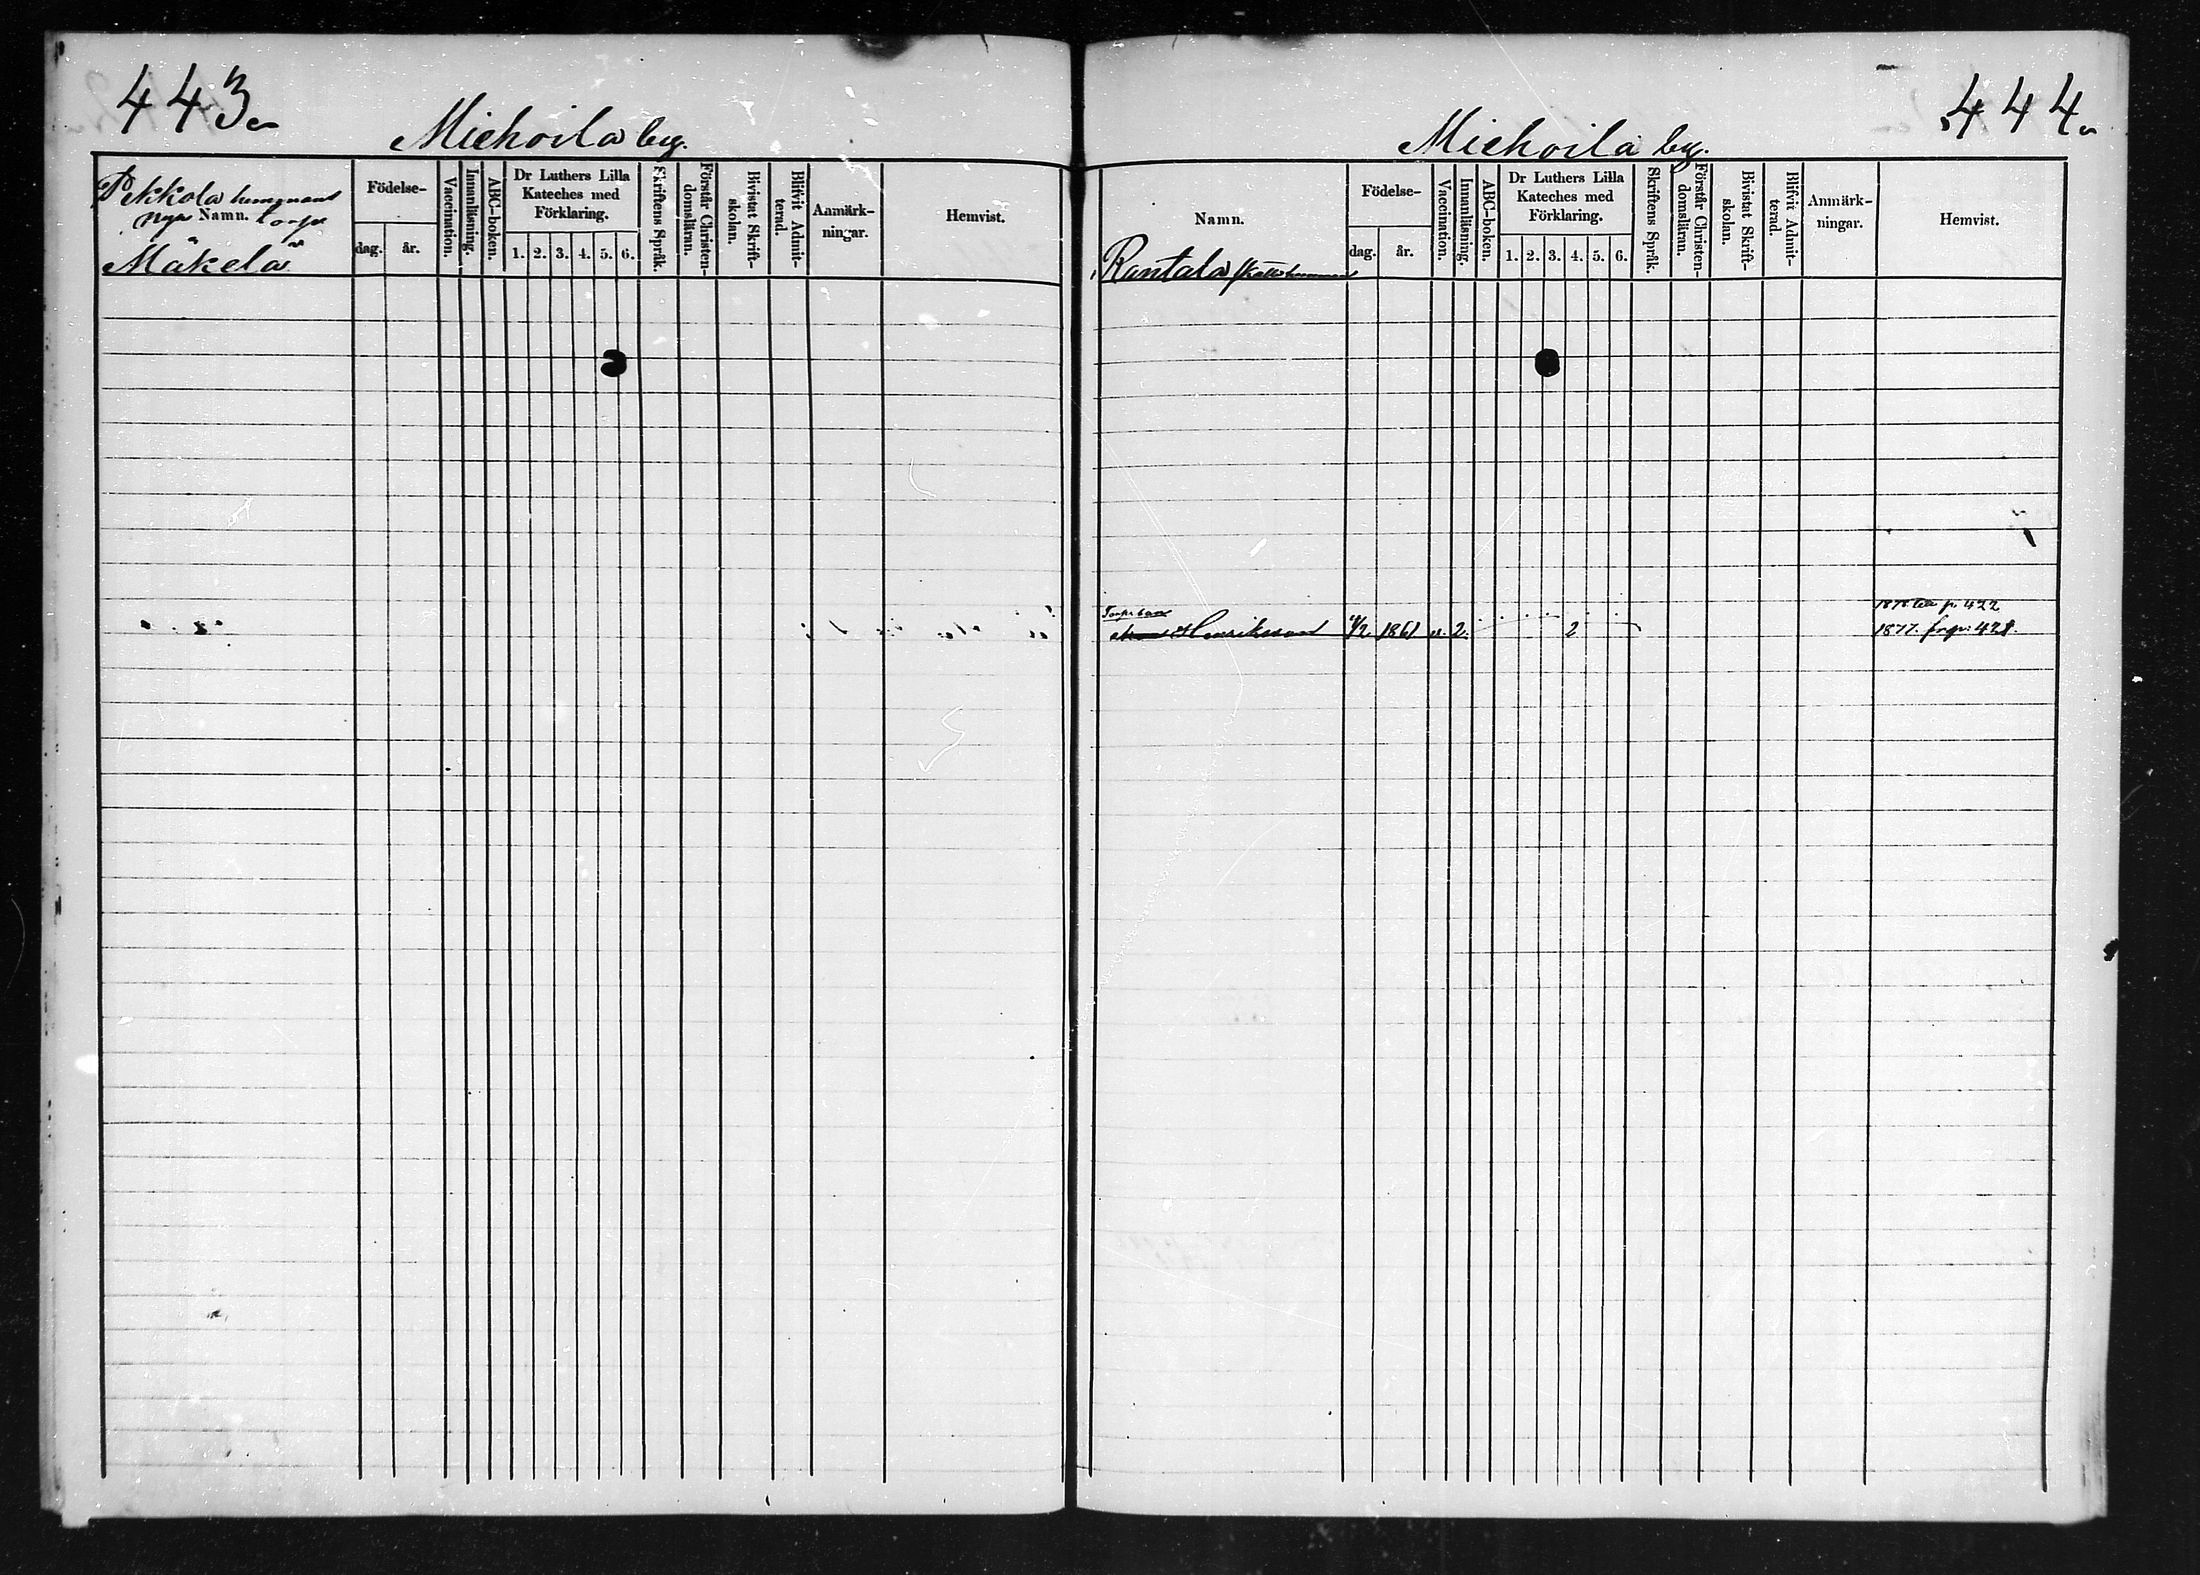 443.
Miehoila by.
Pekkola hemmans
nya Namn. torp
Mäkelä
Födelse-
dag. år.
Vaccination.
Innanläsning.
ABC-boken.
Dr Luthers Lilla
Kateches med
Förklaring.
1. 2. 3. 4. 5. 6.
Skriftens Språk.
Förstår Christen-
domsläran.
Bivistat Skrift-
skolan.
Blifvit Admit-
terad.
Anmärk-
ningar.
Hemvist.
444.
Miehoila by.
Namn.
Rantala
Födelse-
dag. år.
Vaccination.
Innanläsning.
ABC-boken.
Dr Luthers Lilla
Kateches med
Förklaring.
1. 2. 3. 4. 5. 6.
Skriftens Språk.
Förstår Christen-
domsläran.
Bivistat Skrift-
skolan.
Blifvit Admit-
terad.
Anmärk-
ningar.
Hemvist.
1878 till p. 422
Henriksson 1861 v. 2. 2 1877. fr. p. 428.